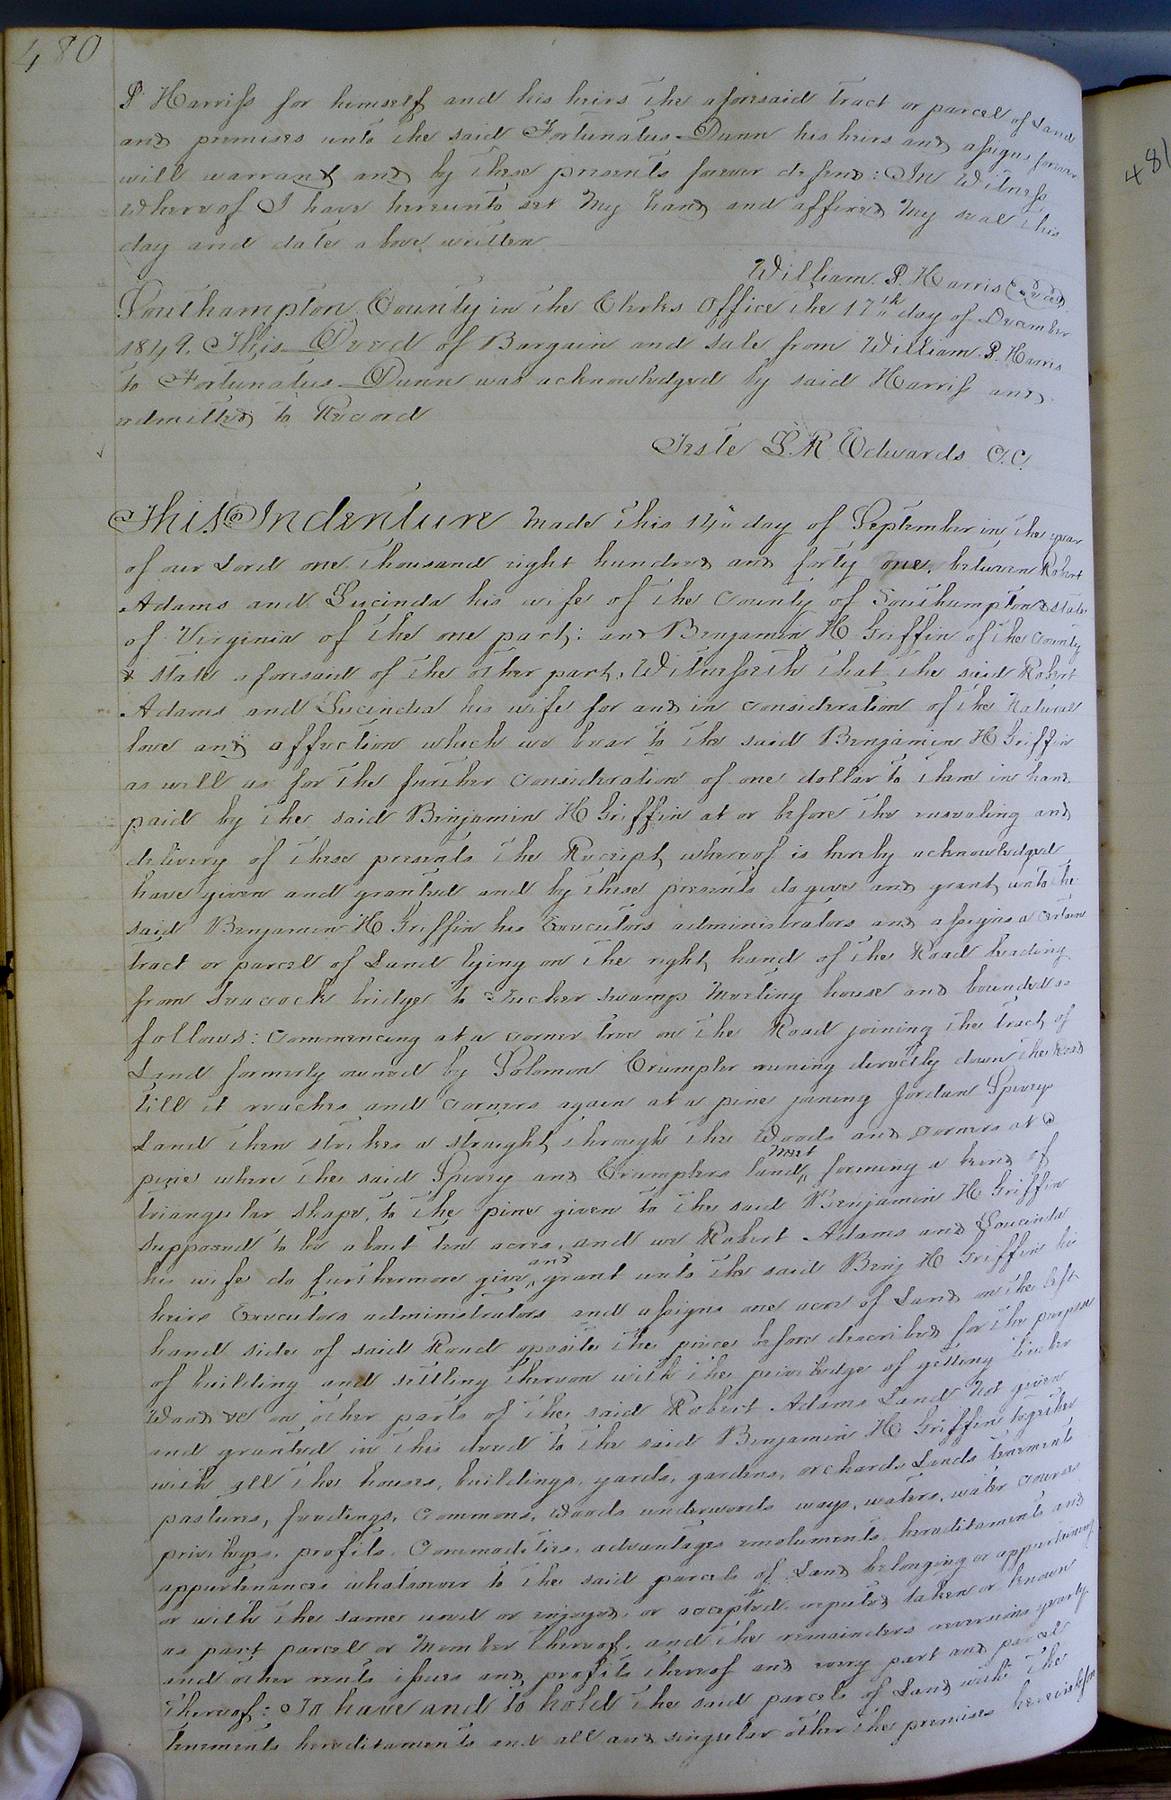 480
P. Harriss for himself and his heirs the aforesaid tract or parcel of Land
and premises unto the said Fortunatus Dunn his heirs and assigns forever
will warrant and by these presents forever defend: In Witness
Whereof I have hereunto set My hand and affixed My seal this
day and date above written
William P. Harris Seal
Southampton County in the Clerks Office the 17th day of December
1849. This Deed of Bargain and sale from William P. Harris
to Fortunatus Dunn was acknowledged by said Harriss and
admitted to Record
Teste L. R. Edwards C.C.
This Indenture Made this 14th day of September in the year
of our Lord one thousand eight hundred and forty one, between Robert
Adams and Lucinda his wife of the County of Southampton & state
of Virginia of the one part: and Benjamin H Griffin of the County
& state aforesaid of the other part, Witnesseth that the said Robert
Adams and Lucinda his wife for and in consideration of the Natural
love and affection which we bear to the said Benjamin H Griffin
as well as for the further consideration of one dollar to them in hand
paid by the said Benjamin H Griffin at or before the ensealing and
delivery of these presents the Receipt whereof is hereby acknowledged
have given and granted and by these presents do give and grant unto the
said Benjamin H Griffin his Executors administrators and assigns a certain
tract or parcel of Land lying on the right hand of the Road leading
from Seacock bridge to Tucker Swamp Meeting house and bounded as
follows: Commencing at a corner tree on the Road joining the tract of
Land formerly owned by Solomon Crumpler runing directly down the Road
till it reaches and corners again at a pine joining Jordan Spivey
Land then strikes a straight through the Woods and corners at a
pine where the said Spivey and Crumplers land meet forming a kind of
triangular shape, to the pine given to the said Benjamin H Griffin
supposed to be about ten acres, and we Robert Adams and Loucinda
his wife do furthermore give and grant unto the said Benj H Griffin his
heirs Executors administrators and assigns one acre of Land on the left
hand side of said Road oposite the piece before described for the purpose
of building and settling thereon with the priviledge of getting timber
Wood &c on other parts of the said Robert Adams Land Not given
and granted in this deed to the said Benjamin H Griffin together
with all the houses, buildings, yards, gardens, orchards Lands tenements
pastures, feedings, commons, Woods underwoods ways, waters, water courses
priviliges, profits, Commodities, advantages emoluments, hereditaments and
appurtenances whatsoever to the said parcels of Land belonging or appertaining
or with the same used or enjoyed, or accepted reputed taken or known
as part parcel or Member thereof, and the remainders reversions yearly
and other rents issues and profits thereof and every part and parcel
thereof: To have and to hold the said parcels of Land with the
tenements hereditaments and all and singular other the premises
481